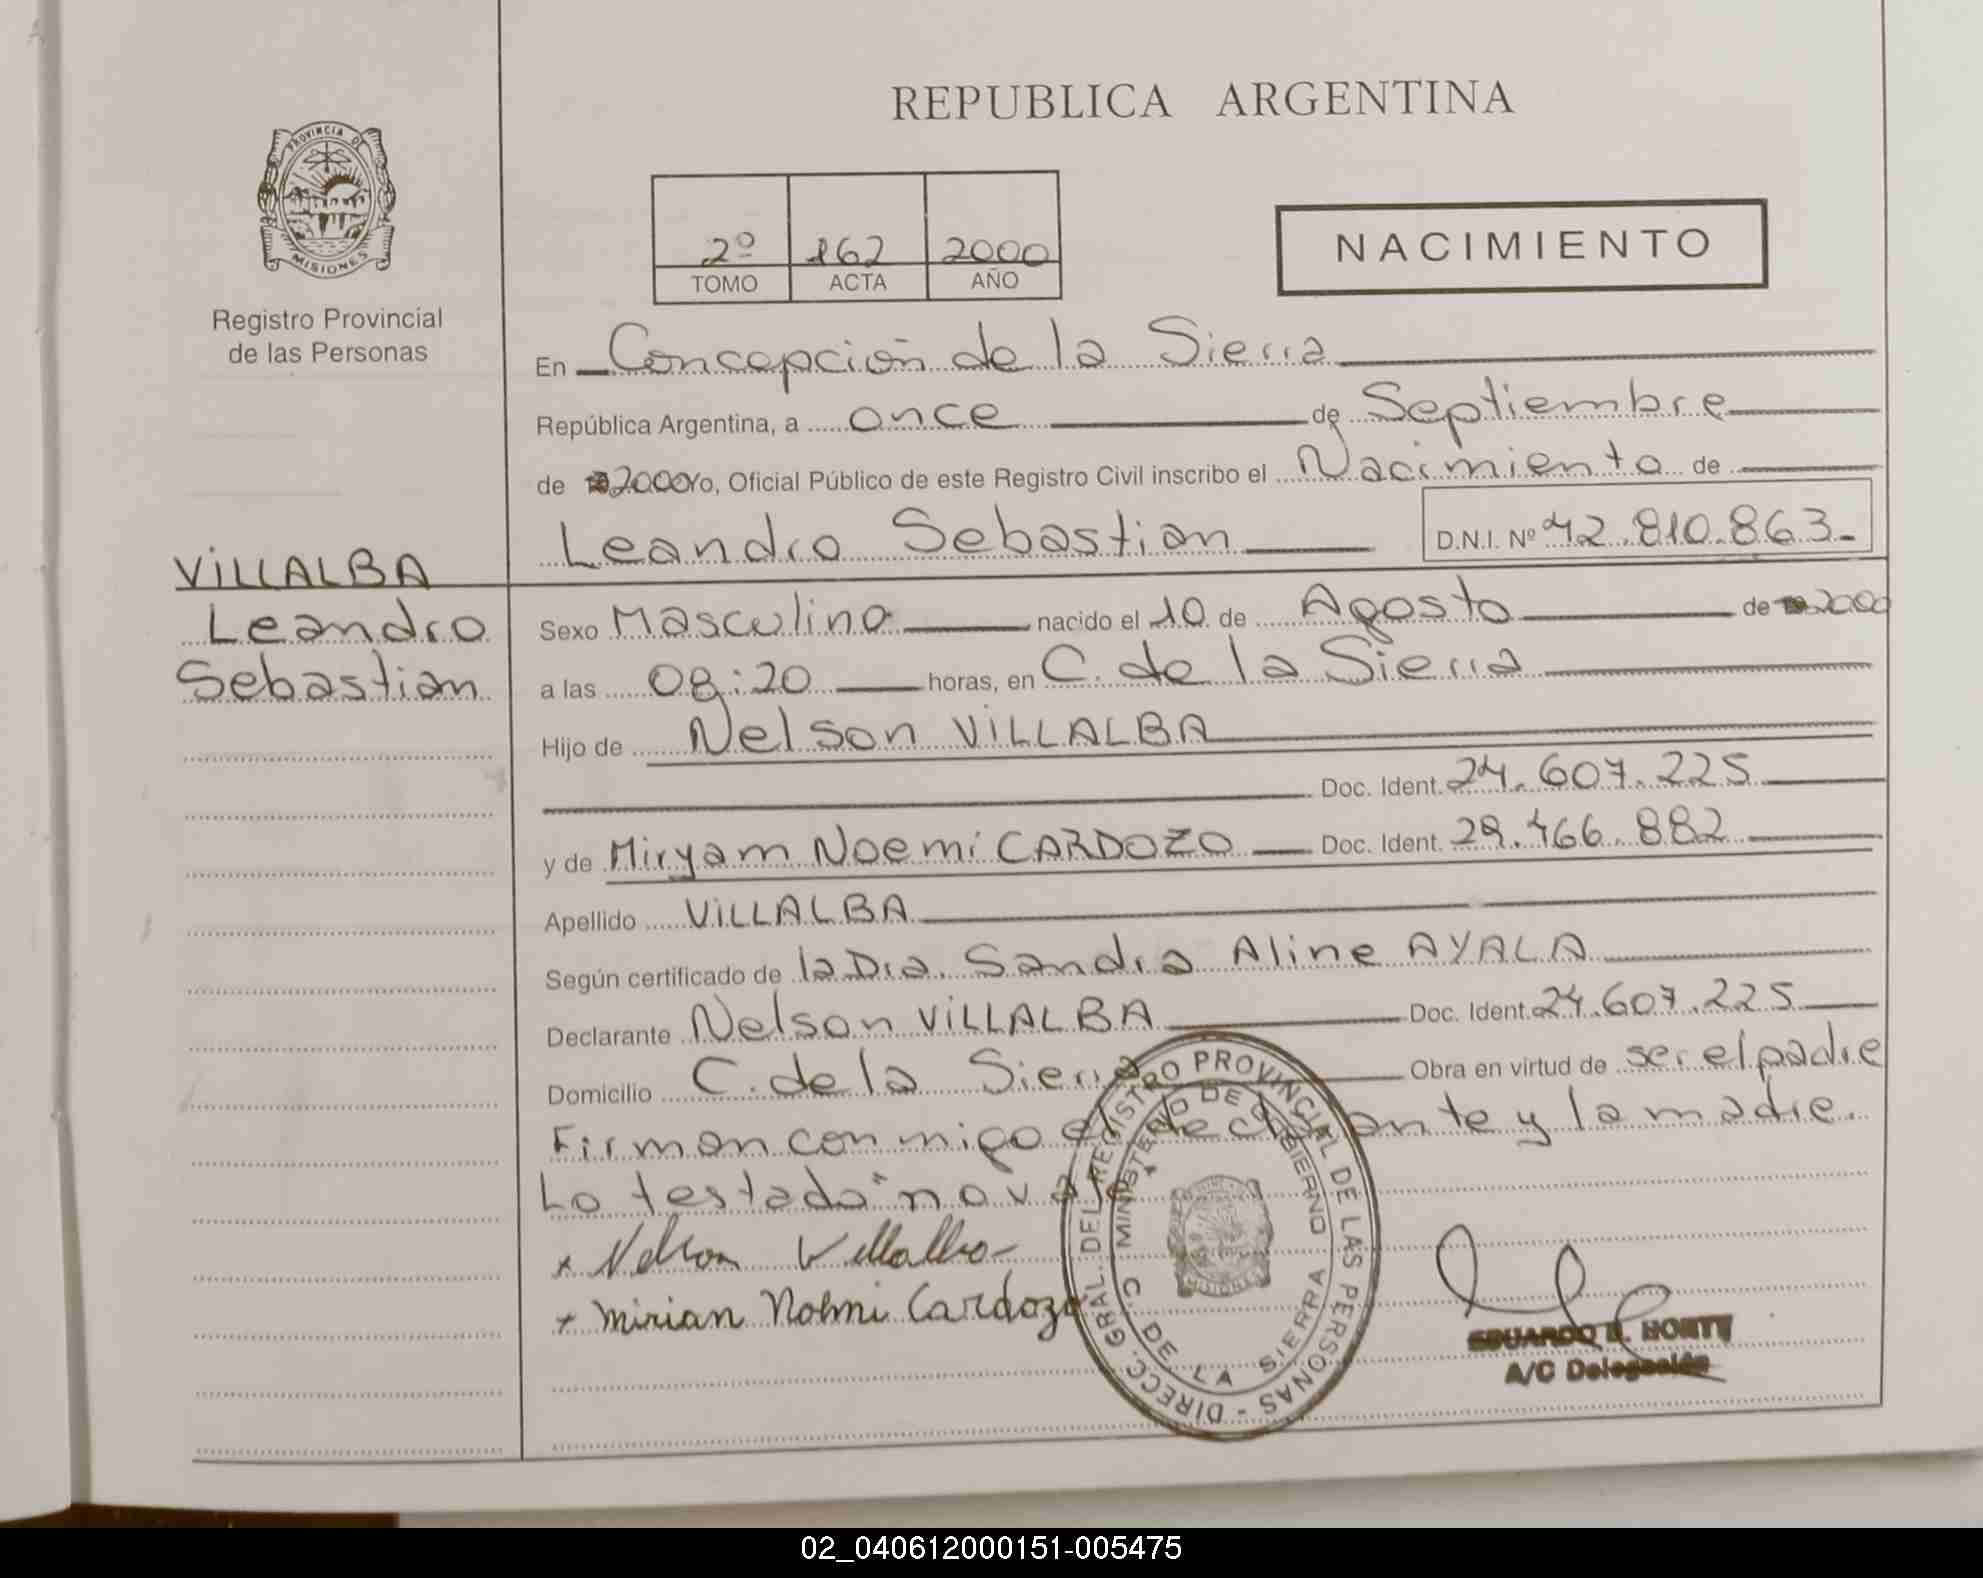 REPUBLICA ARGENTINA
PROVINCIA DE
MISIONES
Registro Provincial
de las Personas
2º 162 2000
TOMO ACTA AÑO
NACIMIENTO
En Concepción de la Sierra
República Argentina, a once de Septiembre
de 2000 Yo, Oficial Público de este Registro Civil inscribo el Nacimiento de
Leandro Sebastian D.N.I. Nº 42.810.863.-
VILLALBA
Leandro
Sebastian
Sexo Masculino nacido el 10 de Agosto de 2000
a las 08:20 horas, en C. de la Sierra
Hijo de Nelson VILLALBA
Doc. Ident. 24.607.225
y de Miryam Noemi CARDOZO Doc. Ident. 29.466.882
Apellido VILLALBA
Según certificado de la Dra. Sandra Aline AYALA
Declarante Nelson VILLALBA Doc. Ident. 24.607.225
Domicilio C. de la Sierra Obra en virtud de ser el padre
Firman conmigo el declarante y la madre.
Lo testado "no vale
x Nelson Villalba
x Mirian Nohmi Cardozo
DIRECC. GRAL. DEL REGISTRO PROVINCIAL DE LAS PERSONAS -
MINISTERIO DE GOBIERNO
C. DE LA SIERRA
MISIONES
EDUARDO NORTE
A/C Delegación
02_040612000151-005475